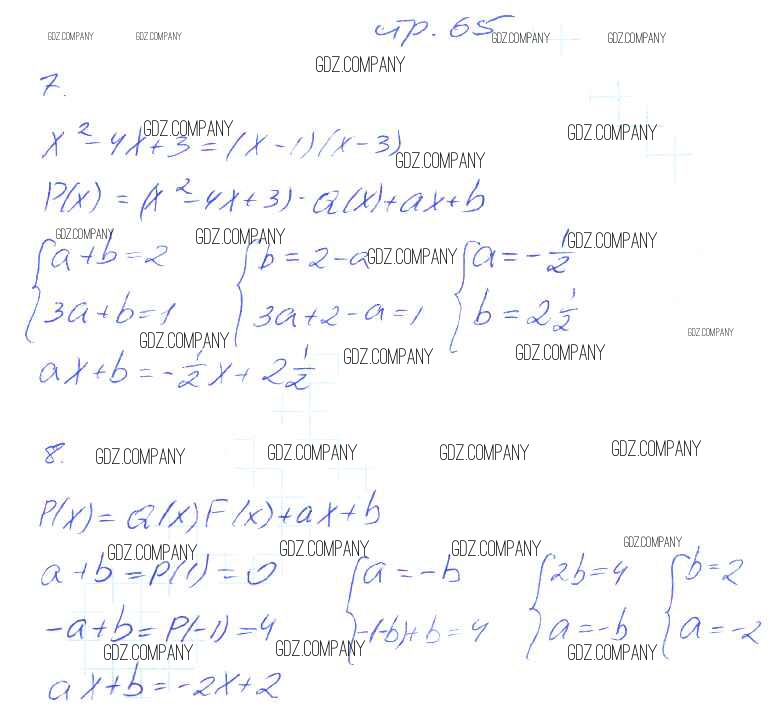 GDZ.COMPANY GDZ.COMPANY стр. 65 GDZ.COMPANY GDZ.COMPANY
GDZ.COMPANY
7.
GDZ.COMPANY GDZ.COMPANY
x² - 4x + 3 = (x - 1)(x - 3)
GDZ.COMPANY
P(x) = (x² - 4x + 3) · Q(x) + ax + b
GDZ.COMPANY GDZ.COMPANY GDZ.COMPANY GDZ.COMPANY
{ a + b = 2 { b = 2 - a { a = - 1/2
3a + b = 1 3a + 2 - a = 1 b = 2 1/2
GDZ.COMPANY GDZ.COMPANY GDZ.COMPANY GDZ.COMPANY
ax + b = - 1/2 x + 2 1/2
8. GDZ.COMPANY GDZ.COMPANY GDZ.COMPANY GDZ.COMPANY
P(x) = Q(x) F(x) + ax + b
GDZ.COMPANY GDZ.COMPANY GDZ.COMPANY GDZ.COMPANY
a + b = P(1) = 0 { a = -b { 2b = 4 { b = 2
-a + b = P(-1) = 4 -(-b) + b = 4 a = -b a = -2
GDZ.COMPANY GDZ.COMPANY GDZ.COMPANY
ax + b = -2x + 2